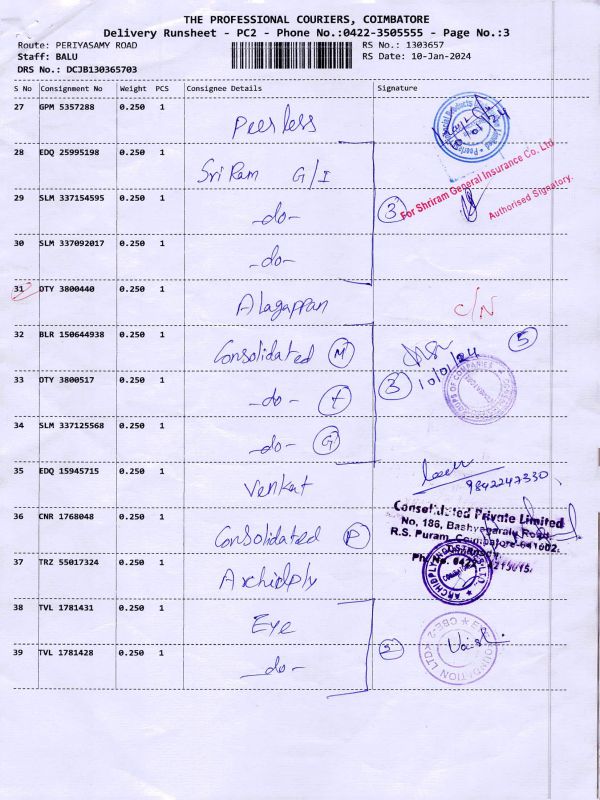 THE PROFESSIONAL COURIERS, COIMBATORE
Delivery Runsheet - PC2 - Phone No.:0422-3505555 - Page No.:3
Route: PERIYASAMY ROAD RS No.: 1303657
Staff: BALU RS Date: 10-Jan-2024
DRS No.: DCJB130365703
S No Consignment No Weight PCS Consignee Details Signature
27 GPM 5357288 0.250 1 Peerless
28 EDQ 25995198 0.250 1 Sri Ram G/I
For Shriram General Insurance Co. Ltd.
Authorised Signatory.
29 SLM 337154595 0.250 1 -do- 3
30 SLM 337092017 0.250 1 -do-
31 OTY 3800440 0.250 1 Alagappan C/N
32 BLR 150644938 0.250 1 Consolidated M 5
10/01/24
33 OTY 3800517 0.250 1 -do- I 3
34 SLM 337125568 0.250 1 -do- G
35 EDQ 15945715 0.250 1 Venkat 9842247330
36 CNR 1768048 0.250 1 Consolidated P
Consolidated Private Limited
No, 186, Bashyagaralu Road,
R.S. Puram, Coimbatore-641002.
37 TRZ 55017324 0.250 1 Archidply
38 TVL 1781431 0.250 1 Eye
39 TVL 1781428 0.250 1 -do- 2